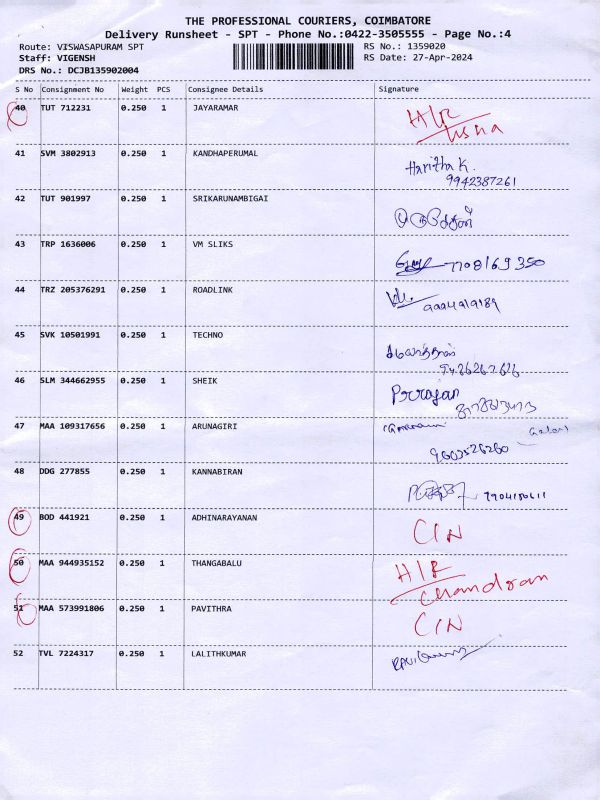 THE PROFESSIONAL COURIERS, COIMBATORE
Delivery Runsheet - SPT - Phone No.:0422-3505555 - Page No.:4
Route: VISWASAPURAM SPT
RS No.: 1359020
Staff: VIGENSH
RS Date: 27-Apr-2024
DRS No.: DCJB135902004
S No Consignment No Weight PCS Consignee Details Signature
40 TUT 712231 0.250 1 JAYARAMAR H/R
41 SVM 3802913 0.250 1 KANDHAPERUMAL Haritha K.
9942387261
42 TUT 901997 0.250 1 SRIKARUNAMBIGAI
43 TRP 1636006 0.250 1 VM SLIKS 7708169350
44 TRZ 205376291 0.250 1 ROADLINK
45 SVK 10501991 0.250 1 TECHNO
46 SLM 344662955 0.250 1 SHEIK
47 MAA 109317656 0.250 1 ARUNAGIRI
48 DDG 277855 0.250 1 KANNABIRAN
49 BOD 441921 0.250 1 ADHINARAYANAN C/N
50 MAA 944935152 0.250 1 THANGABALU H/R
Chandran
51 MAA 573991806 0.250 1 PAVITHRA C/N
52 TVL 7224317 0.250 1 LALITHKUMAR